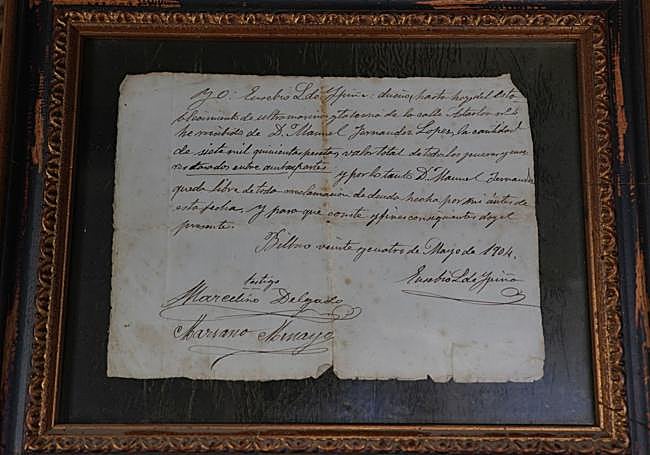 Yo: Eusebio L. de Ypiña: dueño, hasta hoy, del Esta-
blecimiento de ultramarinos y tabernas de la calle Astarloa nº 2
he recibido de D. Manuel Fernandez Lopez, la cantidad
de siete mil quinientas pesetas, valor total de todos los generos y
entre ambas partes y por lo tanto D. Manuel Fernandez
queda libre de toda reclamacion de deuda hecha por mi antes de
esta fecha. Y para que conste y fines consiguientes doy el
presente.
Bilbao veinte y cuatro de Mayo de 1904.
testigo Eusebio L. de Ypiña
Marcelino Delgado
Mariano Minaya